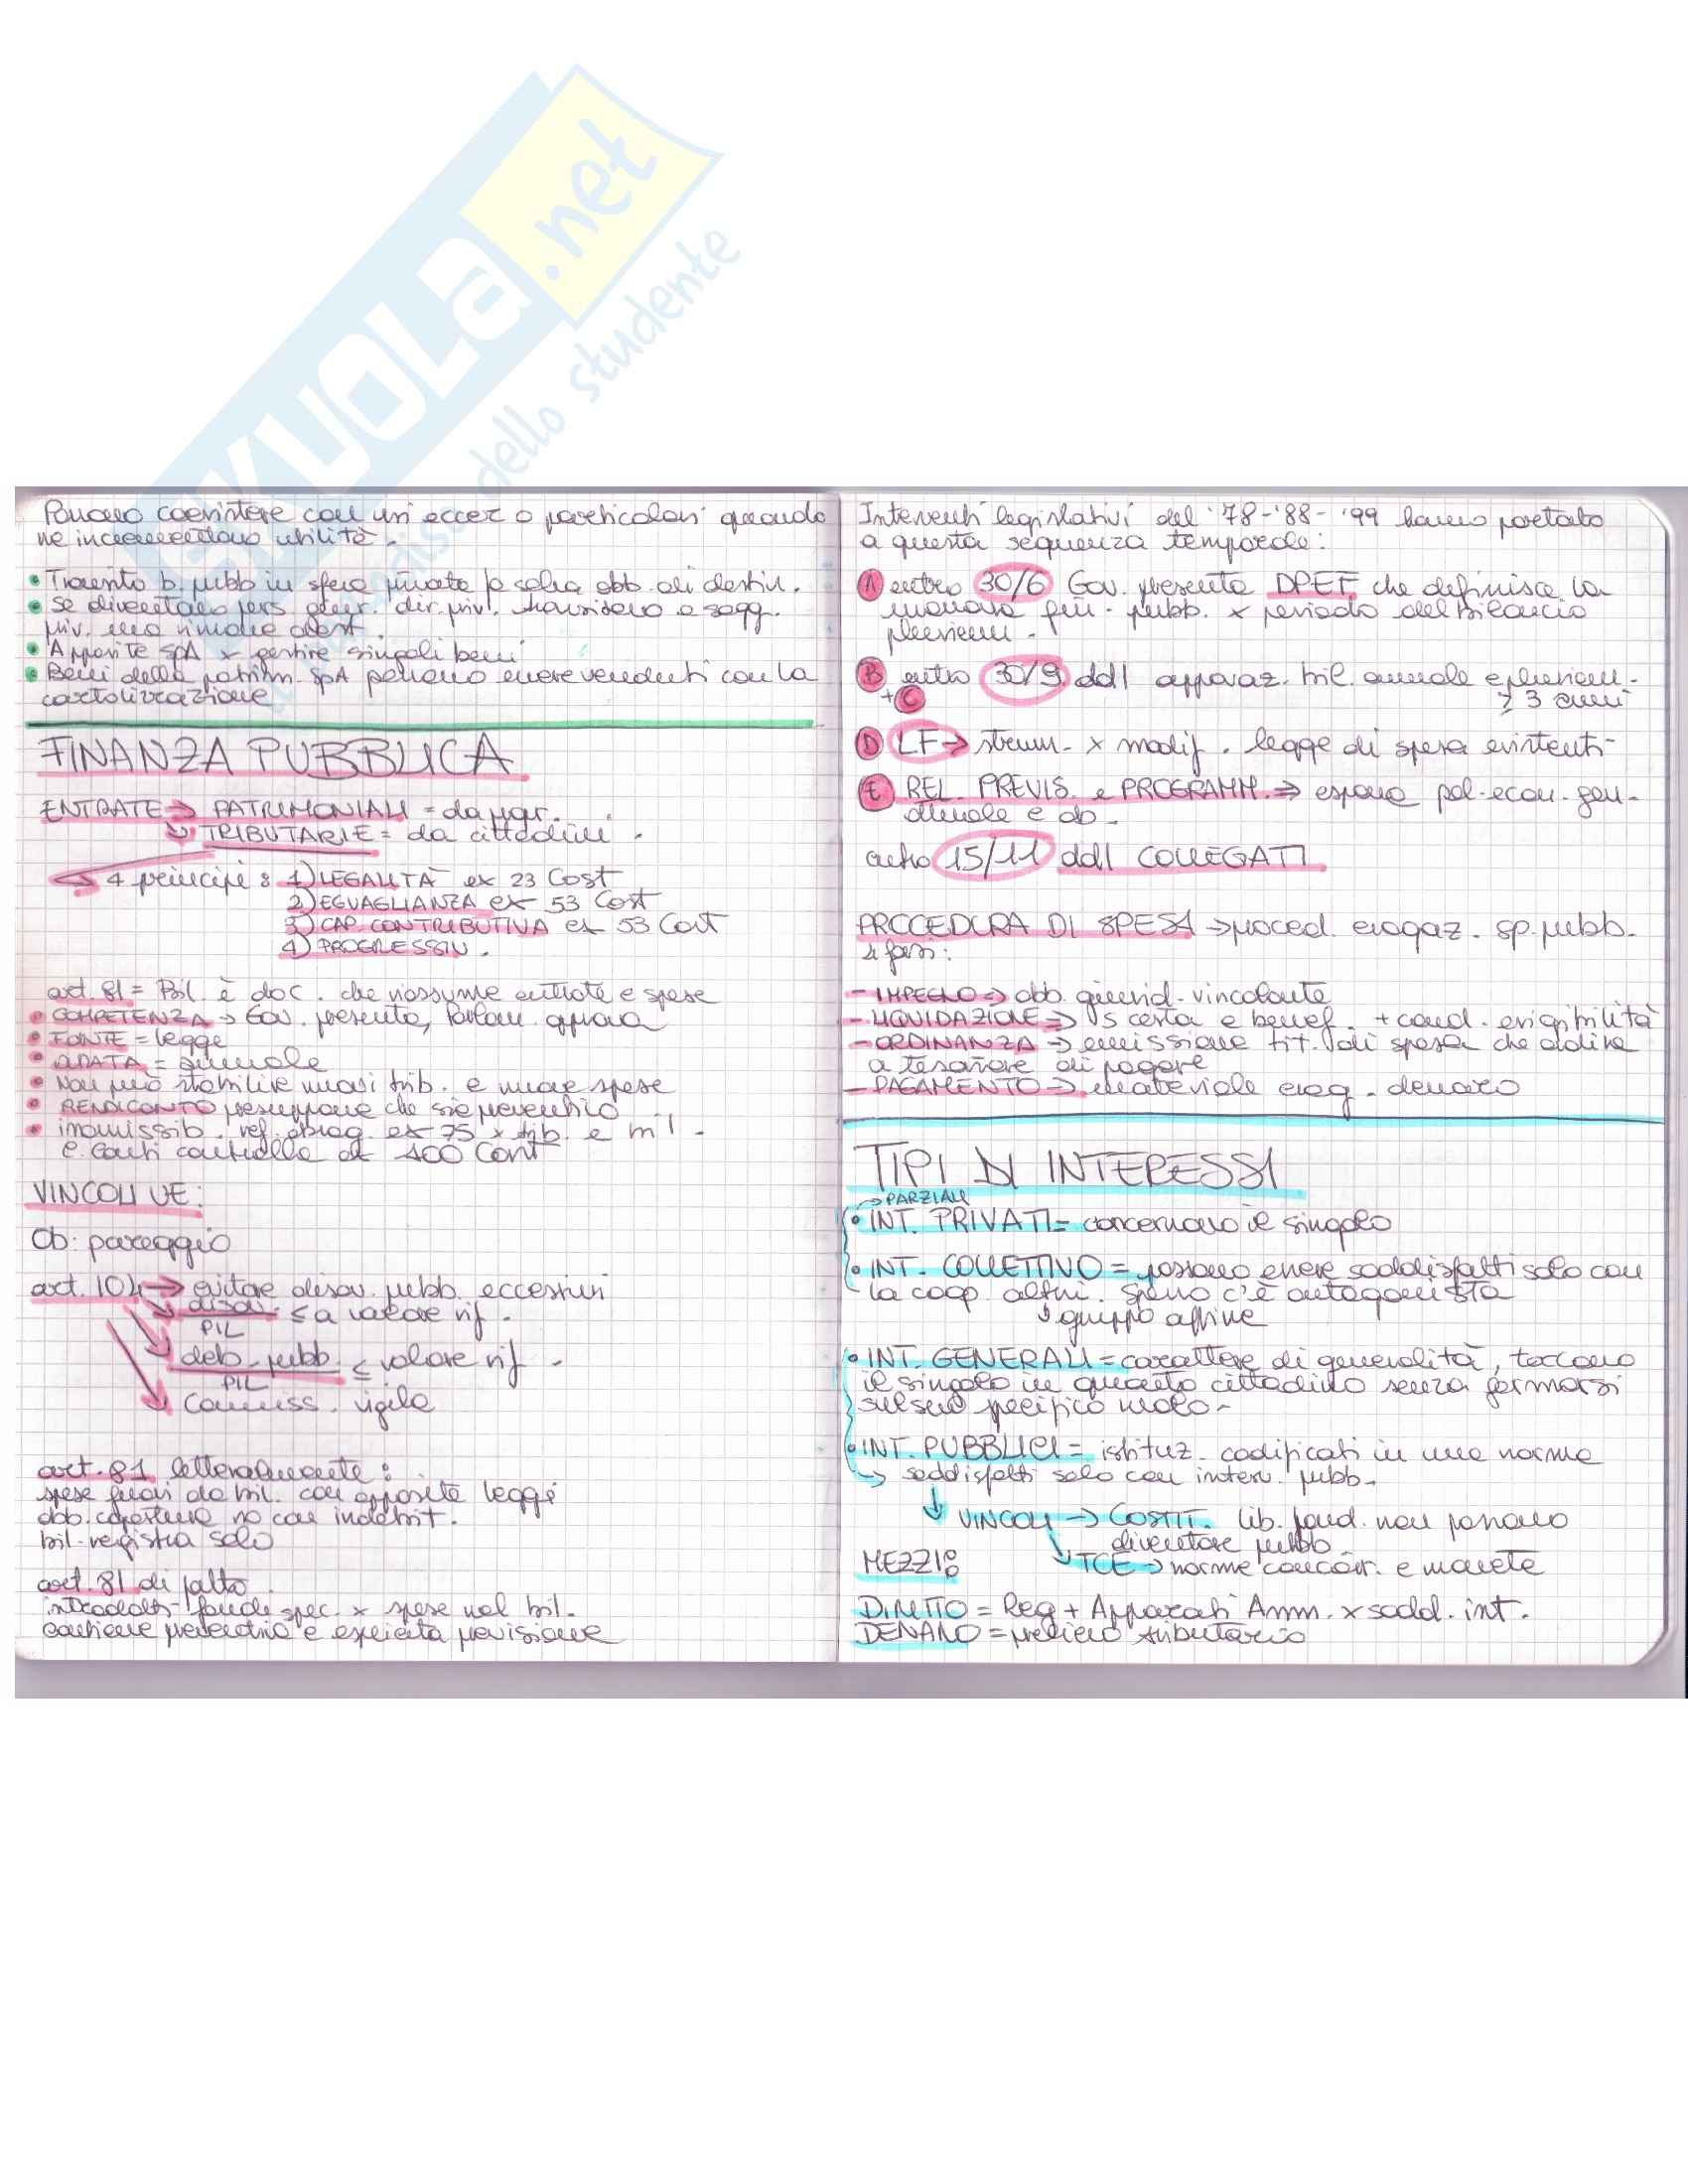 SKUOLA.net
dello studente
Possono coesistere con usi eccez o particolari quando
ne incrementano utilità.
• Trasferito b. pubb in sfera privata salvo obb. di destin.
• Se diventano pers giur. dir. priv. trasferiscono a sogg.
priv. ma rimane dest.
• Apposite SpA x gestire singoli beni
• Beni della patrim. SpA possono essere venduti con la
cartolizzazione
FINANZA PUBBLICA
ENTRATE → PATRIMONIALI =
↳ TRIBUTARIE = da cittadini.
→ 4 principi: 1) LEGALITÀ ex 23 Cost
2) EGUAGLIANZA ex 53 Cost
3) CAP. CONTRIBUTIVA ex 53 Cost
4) PROGRESSIV.
art. 81 = Bil. è doc. che riassume entrate e spese
• COMPETENZA → Gov. presenta, Parlam. approva
• FONTE = legge
• DURATA = annuale
• Non può stabilire nuovi trib. e nuove spese
• RENDICONTO presuppone che sia preventivo
• inamissib. ref. abrog. ex 75 x trib. e bil.
C. Conti controlla ex 100 Cost
VINCOLI UE:
Ob: pareggio
art. 104 → evitare disav. pubb. eccessivi
↘ disav. ≤ a valore rif.
PIL
↘ deb. pubb. ≤ valore rif.
PIL
↘ Commiss. vigila
art. 81 letteralmente:
spese fuori da bil. con apposite leggi
obb. copertura no con indebit.
bil. registra solo
art. 81 di fatto
introdotti fondi spec. x spese nel bil.
contiene preventivo e esplicita previsione
Interventi legislativi del '78-'88-'99 hanno portato
a questa sequenza temporale:
A entro 30/6 Gov. presenta DPEF che definisce la
manovra fin. pubb. x periodo del bilancio
plurienn.
B entro 30/9 ddl approvaz. bil. annuale e plurienn.
+ C
3 anni
D LF → strum. x modif. legge di spesa esistenti
E REL. PREVIS. e PROGRAMM. → espone pol. econ. gen.
attuale e ob.
entro 15/11 ddl COLLEGATI
PROCEDURA DI SPESA → proced. erogaz. sp. pubb.
4 fasi:
- IMPEGNO → obb. giurid. vincolante
- LIQUIDAZIONE → s certa e benef. + cond. esigibilità
- ORDINANZA → emissione tit. di spesa che ordina
a tesoriere di pagare
- PAGAMENTO → materiale erog. denaro
TIPI DI INTERESSI
→ PARZIALI
• INT. PRIVATI = concernono il singolo
• INT. COLLETTIVO = possono essere soddisfatti solo con
la coop. altri. Spesso c'è antagonista
↳ gruppo affine
• INT. GENERALI = carattere di generalità, toccano
il singolo in quanto cittadino senza fermarsi
sul suo specifico ruolo.
• INT. PUBBLICI = istituz. codificati in una norma
→ soddisfatti solo con interv. pubb.
↓ VINCOLI → COSTIT. lib. fond. non possono
diventare pubb
MEZZI: ↘ TCE → norme concorr. e moneta
DIRITTO = Reg + Apparati Amm. x sodd. int.
DENARO = prelievo tributario